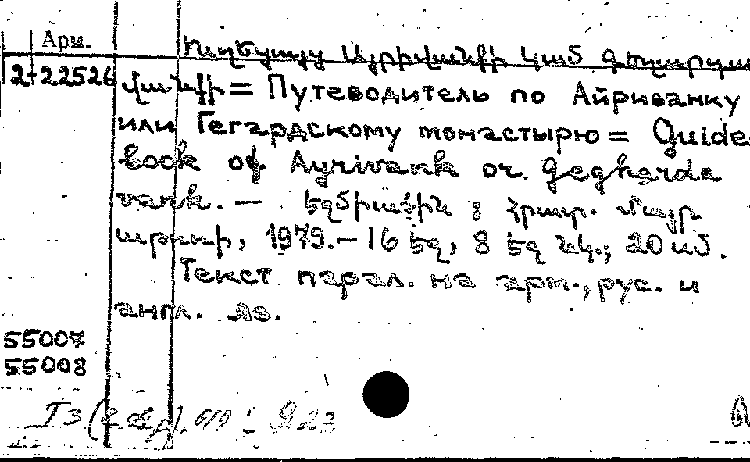 Арм.
Ուղեցույց Այրիվանքի կամ գեղարդա
2-22526 վանքի = Путеводитель по Айриванку
или Гегардскому монастырю = Guide
book of Ayrivank or Gegharda
vank. — Էջմիածին : Հրատ. Մայր
աթոռի, 1979. — 16 էջ, 8 էջ նկ.; 20 սմ.
Текст парал. на арм., рус. и
англ. яз.
55007
55008